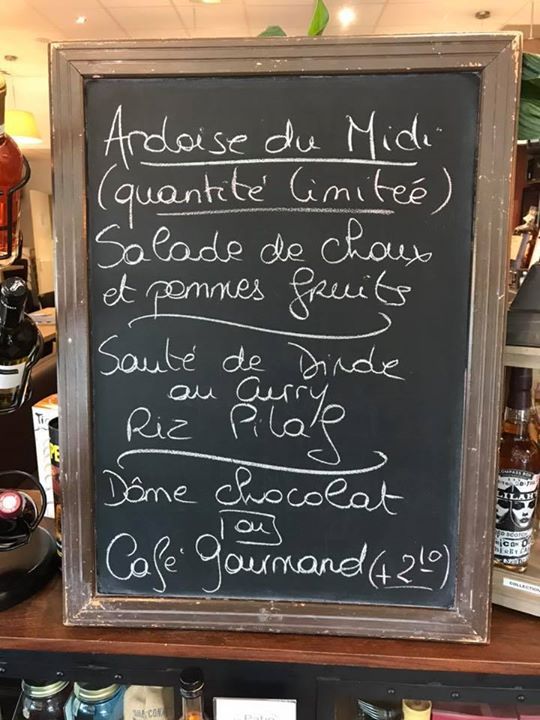 Ardoise du Midi
(quantité limitée)
Salade de choux
et pommes fruits
Sauté de Dinde
au curry
Riz Pilaf
Dôme chocolat
ou
Café gourmand (+2 10)
LILAH
COLLECTION